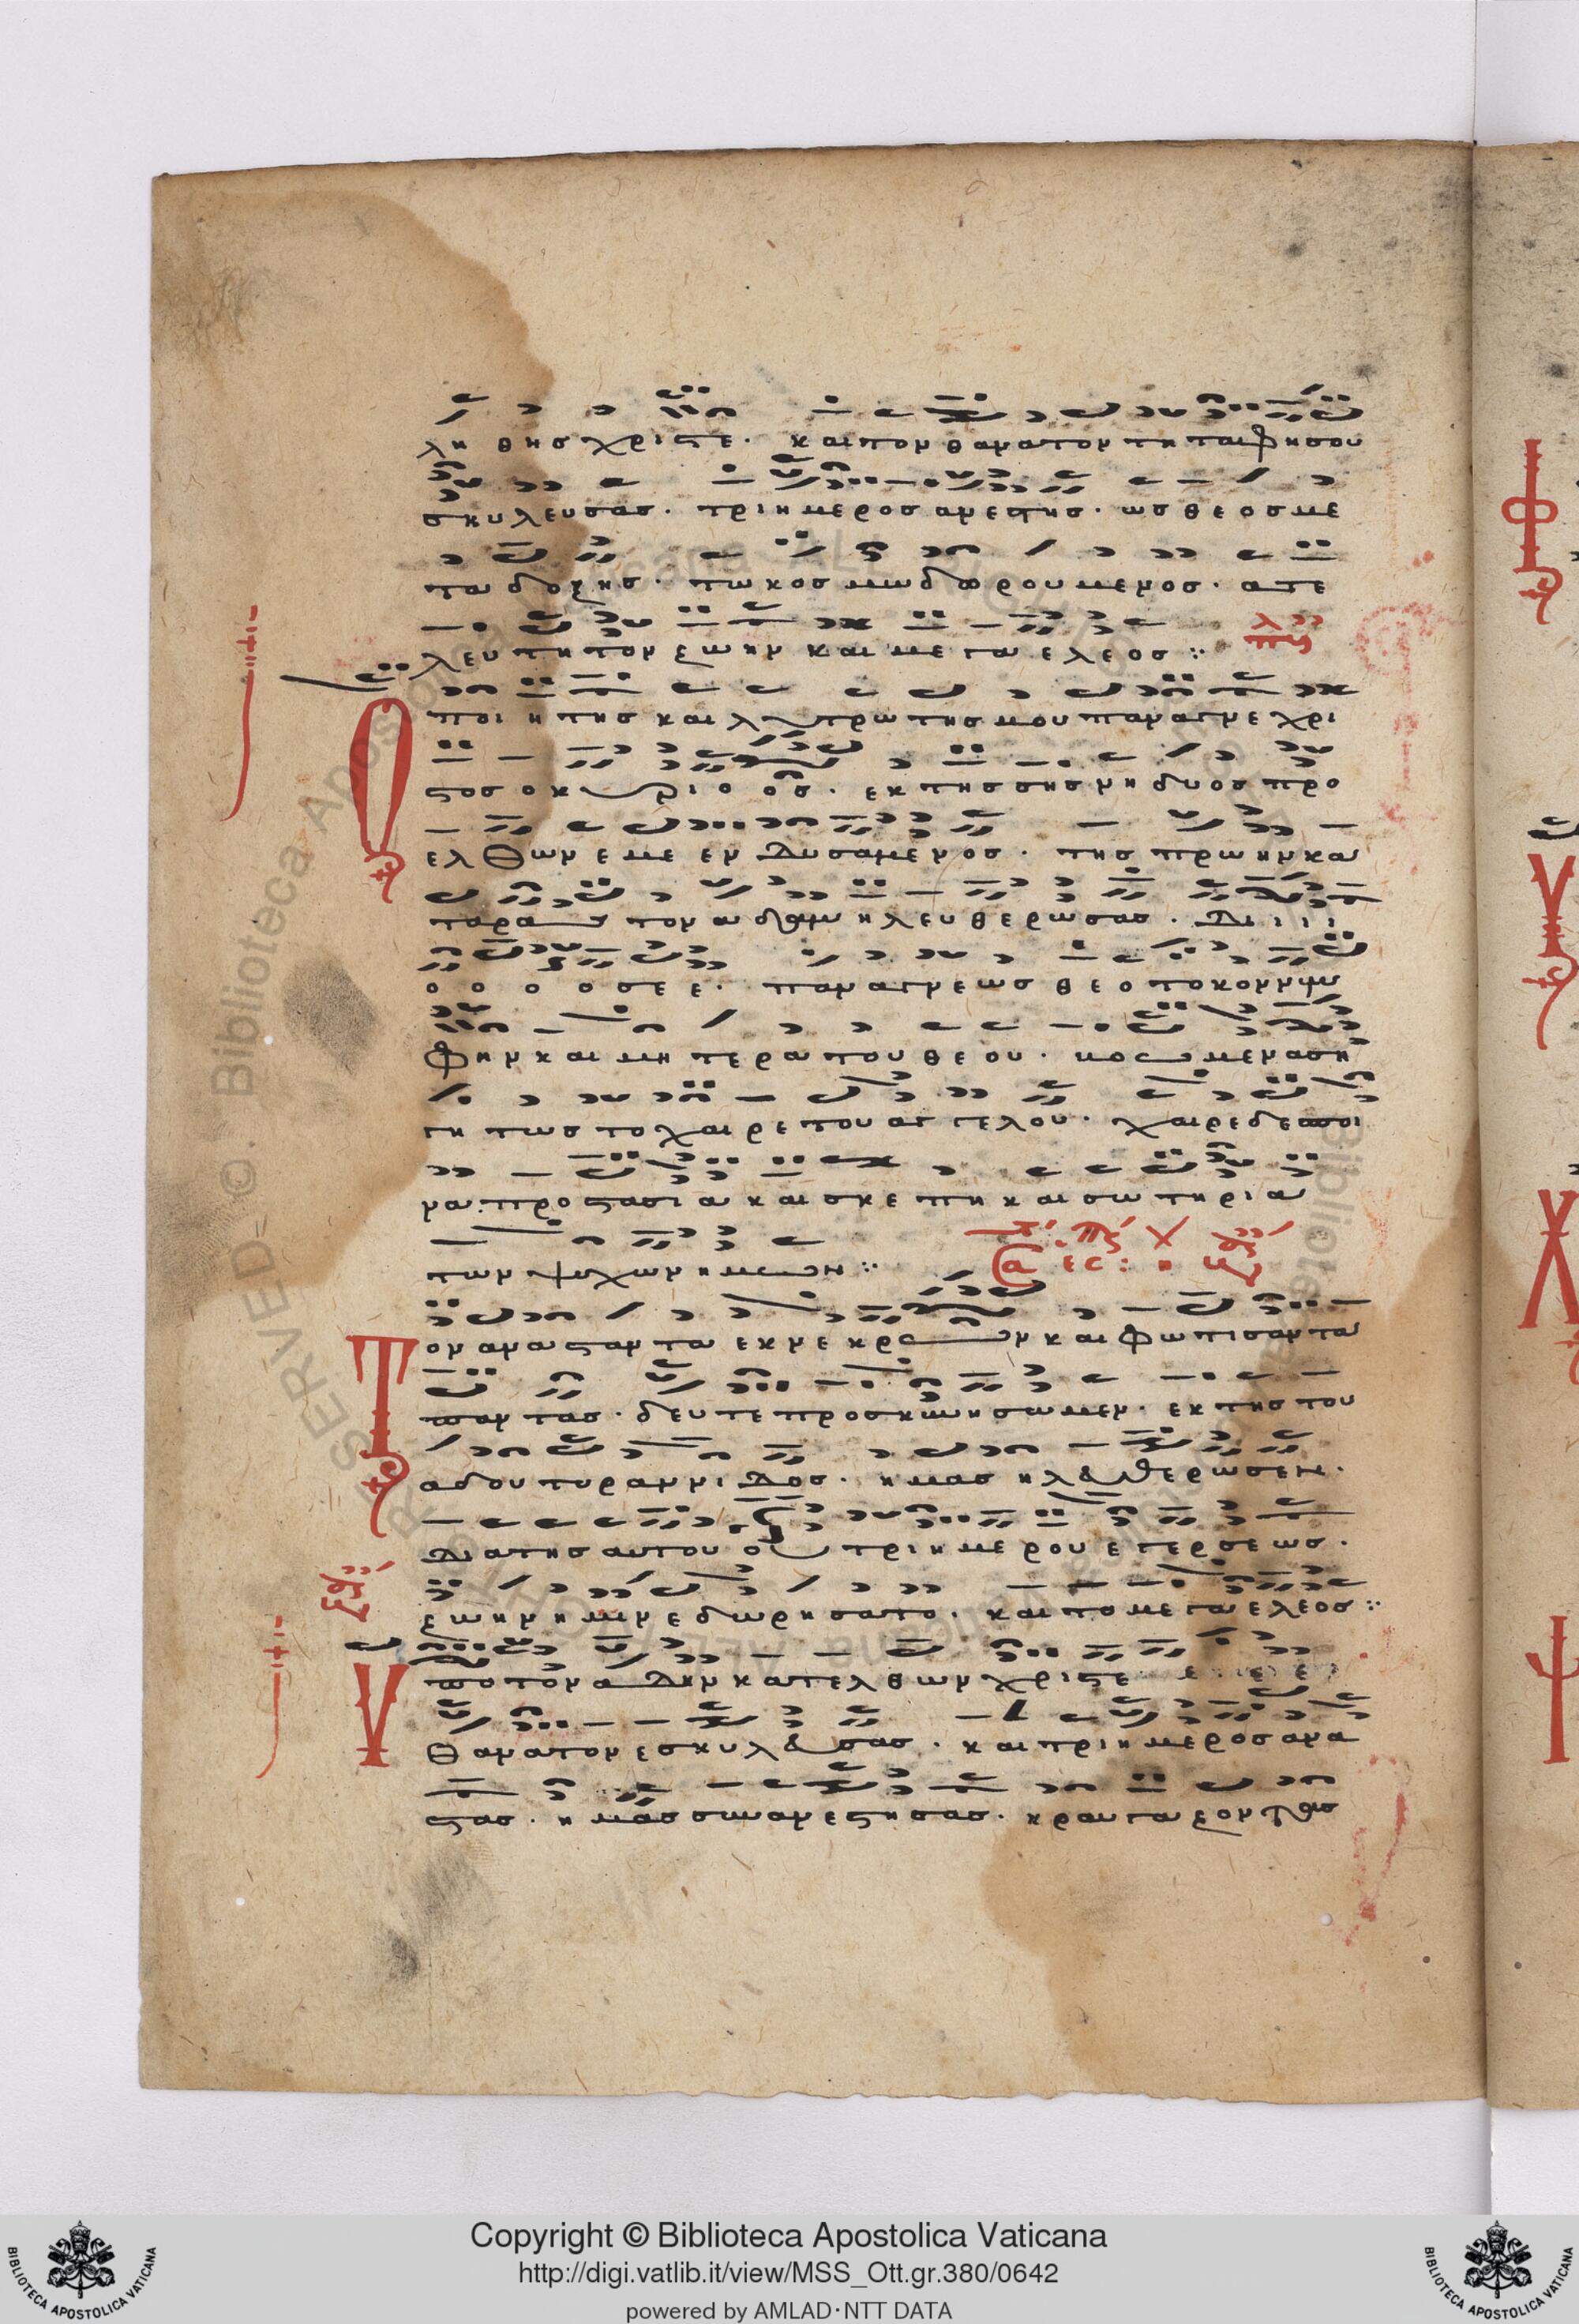 λη θησ χριστε · και τον θανατον τη ταφη σου
σκυλευσασ · τριημεροσ ανεστησ · ωσ θεοσ με
τα δοξησ · τω κοσμω δωρουμενοσ · ατε
λευτητον ζωην και μεγα ελεοσ :·
Ο ποιητησ και λυτρωτησ μου παναγνε χρι
στοσ ο κυριο οσ · εκ τησ σησ νηδυοσ προ
ελθων εμε ενδυσαμενοσ · τησ πρωην κα
ταρασ τον αδαμ ηλευθερωσασ · Διιιι
ο ο ο ο σε ε · παναγνε ωσ θεοτοκον νυμ
φην και μητερα του θεου · βοωμεν ασι
γητωσ το χαιρε του αγγελου · χαιρε δεσποι
να · προστασια και σκεπη και σωτηρια
των ψυχων ημων :·
Τον αναστανταεκ νεκρων και φωτισαντα
παντασ · δευτε προσκυνησωμεν · εκ τησ του
αδου τυραννιδοσ · ημασ ηλευθερωσεν ·
Δια τησ αυτου ου τριημερου εγερσεωσ ·
ζωην ημιν εδωρησατο · και το μεγα ελεοσ :·
Υ πο τον αδην κατελθων χριστε ε ε ε
Θανατον εσκυλευσασ · και τριημεροσ ανα
στασ · ημασ συνανεστησασ · κραυγαζοντασ
Copyright © Biblioteca Apostolica Vaticana
http://digi.vatlib.it/view/MSS_Ott.gr.380/0642
powered by AMLAD·NTT DATA
BIBLIOTECA APOSTOLICA VATICANA
BIBLIOTECA APOSTOLICA VATICANA